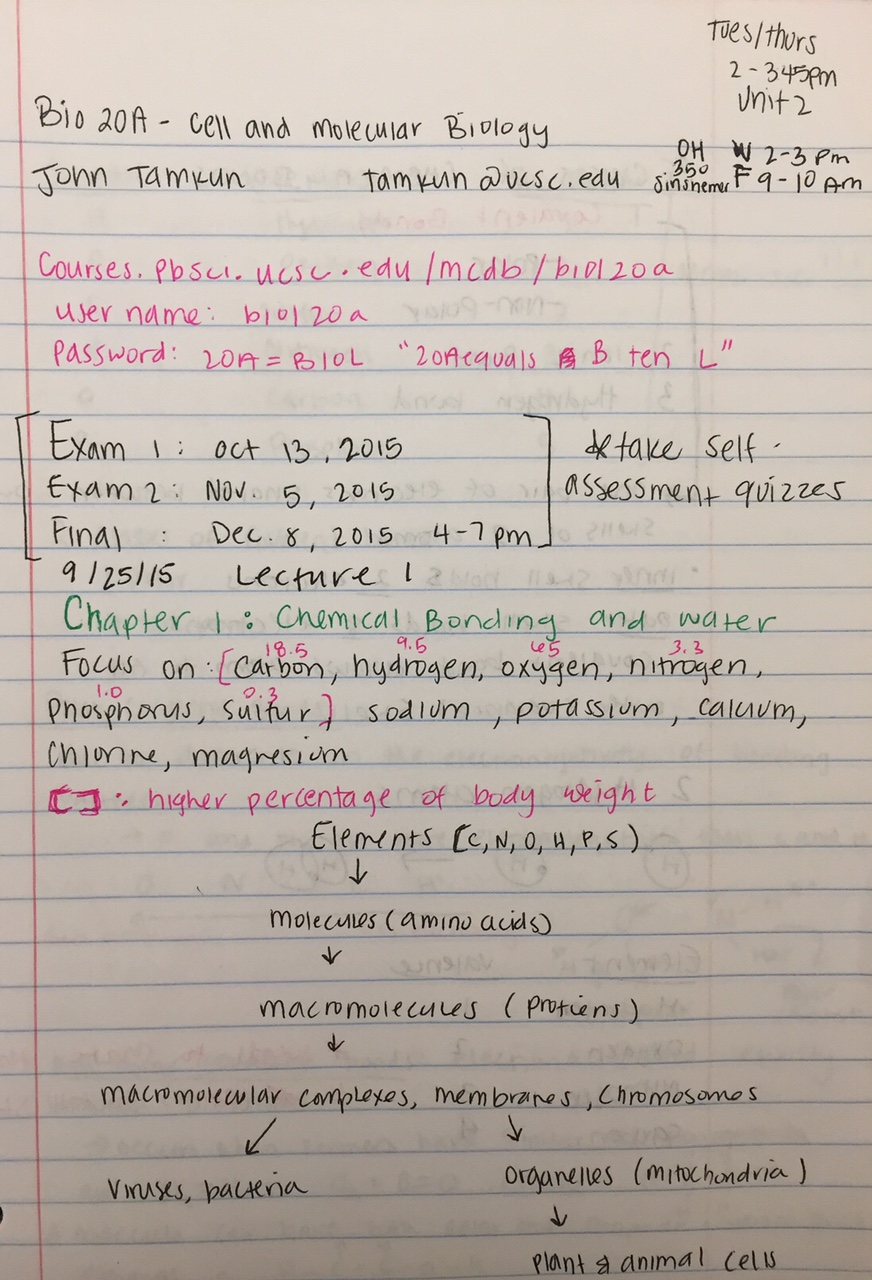 Tues/thurs
2-345pm
Unit 2
Bio 20A - Cell and Molecular Biology
OH W 2-3 pm
John Tamkun tamkun@ucsc.edu 350 F 9-10 Am
Sinsheimer
Courses.pbsci.ucsc.edu/mcdb/biol20a
user name: biol20a
Password: 20A=B10L "20Aequals B ten L"
Exam 1: Oct 13, 2015 * take self-
Exam 2: Nov. 5, 2015 assessment quizzes
Final : Dec. 8, 2015 4-7 pm
9/25/15 Lecture 1
Chapter 1: Chemical Bonding and water
18.5 9.5 65 3.3
Focus on: [Carbon, hydrogen, oxygen, nitrogen,
1.0 0.3
Phosphorus, Sulfur] sodium, potassium, calcium,
Chlorine, magnesium
[]: higher percentage of body weight
Elements [C, N, O, H, P, S)
↓
molecules (amino acids)
↓
macromolecules (Protiens)
↓
macromolecular complexes, membranes, Chromosomes
↙ ↘
Viruses, bacteria Organelles (mitochondria)
↓
Plant & animal cells